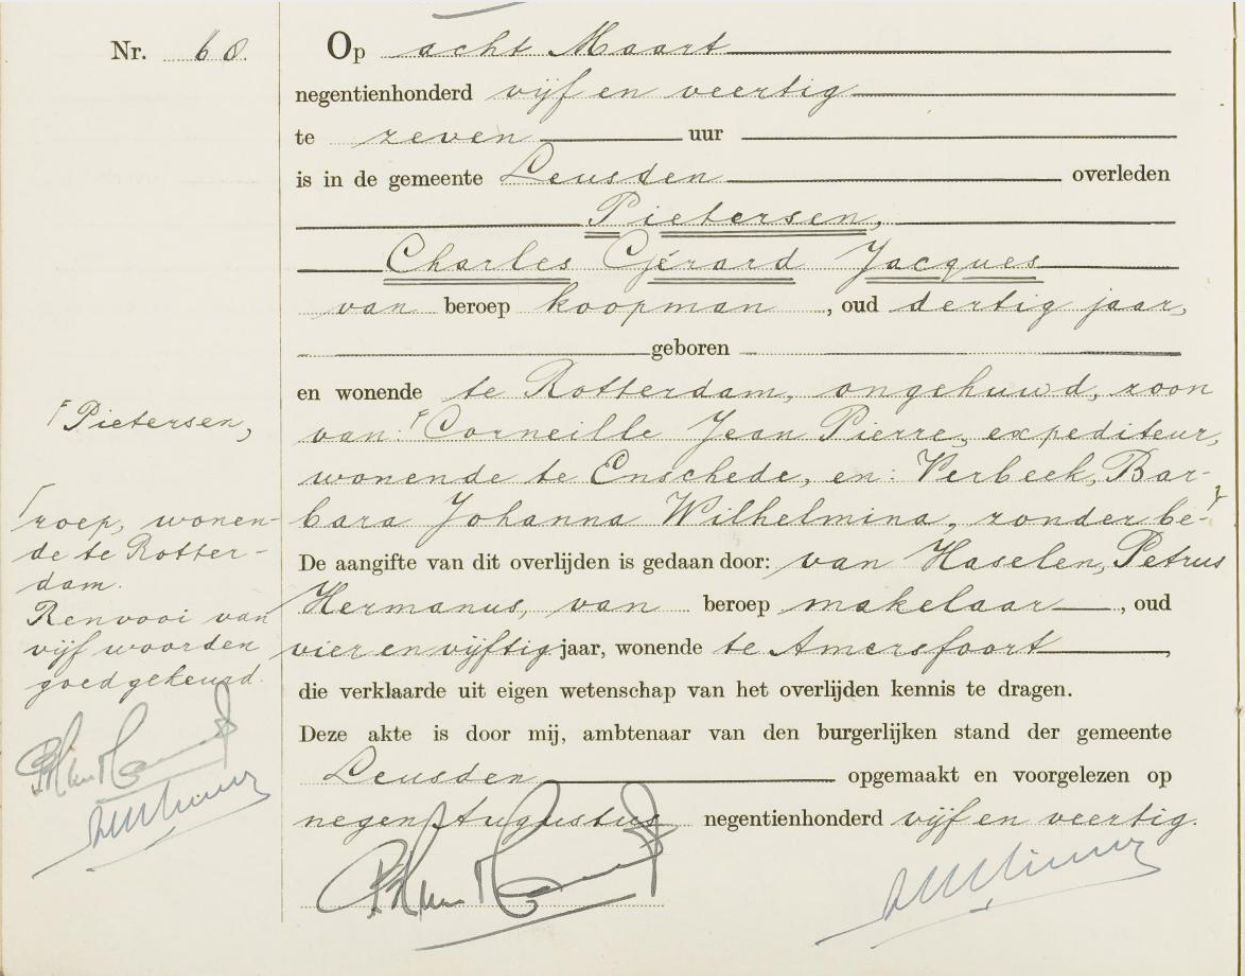 Nr. 60.
Op acht Maart
negentienhonderd vijf en veertig
te zeven uur
is in de gemeente Leusden overleden
Pietersen,
Charles Gérard Jacques
van beroep koopman, oud dertig jaar,
geboren
en wonende te Rotterdam, ongehuwd, zoon
van: Corneille Jean Pierre, expediteur,
wonende te Enschede, en: Verbeek, Bar-
bara Johanna Wilhelmina, zonder be-
De aangifte van dit overlijden is gedaan door: van Haselen, Petrus
Hermanus, van beroep makelaar, oud
vier en vijftig jaar, wonende te Amersfoort,
die verklaarde uit eigen wetenschap van het overlijden kennis te dragen.
Deze akte is door mij, ambtenaar van den burgerlijken stand der gemeente
Leusden opgemaakt en voorgelezen op
negen Augustus negentienhonderd vijf en veertig.
Pietersen,
roep, wonen-
de te Rotter-
dam.
Renvooi van
vijf woorden
goedgekeurd.